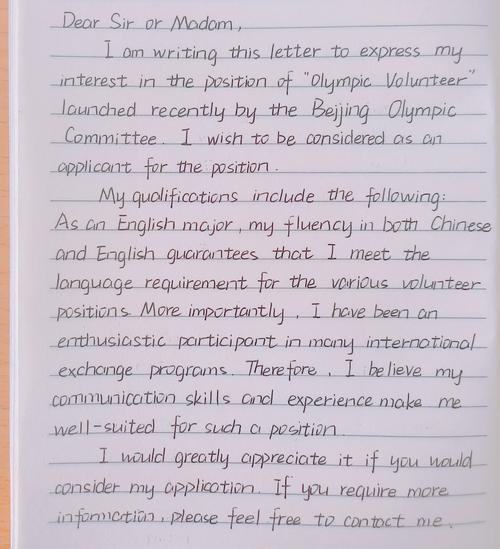 Dear Sir or Madam,
I am writing this letter to express my
interest in the position of "Olympic Volunteer"
launched recently by the Beijing Olympic
Committee. I wish to be considered as an
applicant for the position.
My qualifications include the following:
As an English major, my fluency in both Chinese
and English guarantees that I meet the
language requirement for the various volunteer
positions. More importantly, I have been an
enthusiastic participant in many international
exchange programs. Therefore, I believe my
communication skills and experience make me
well-suited for such a position.
I would greatly appreciate it if you would
consider my application. If you require more
information, please feel free to contact me.